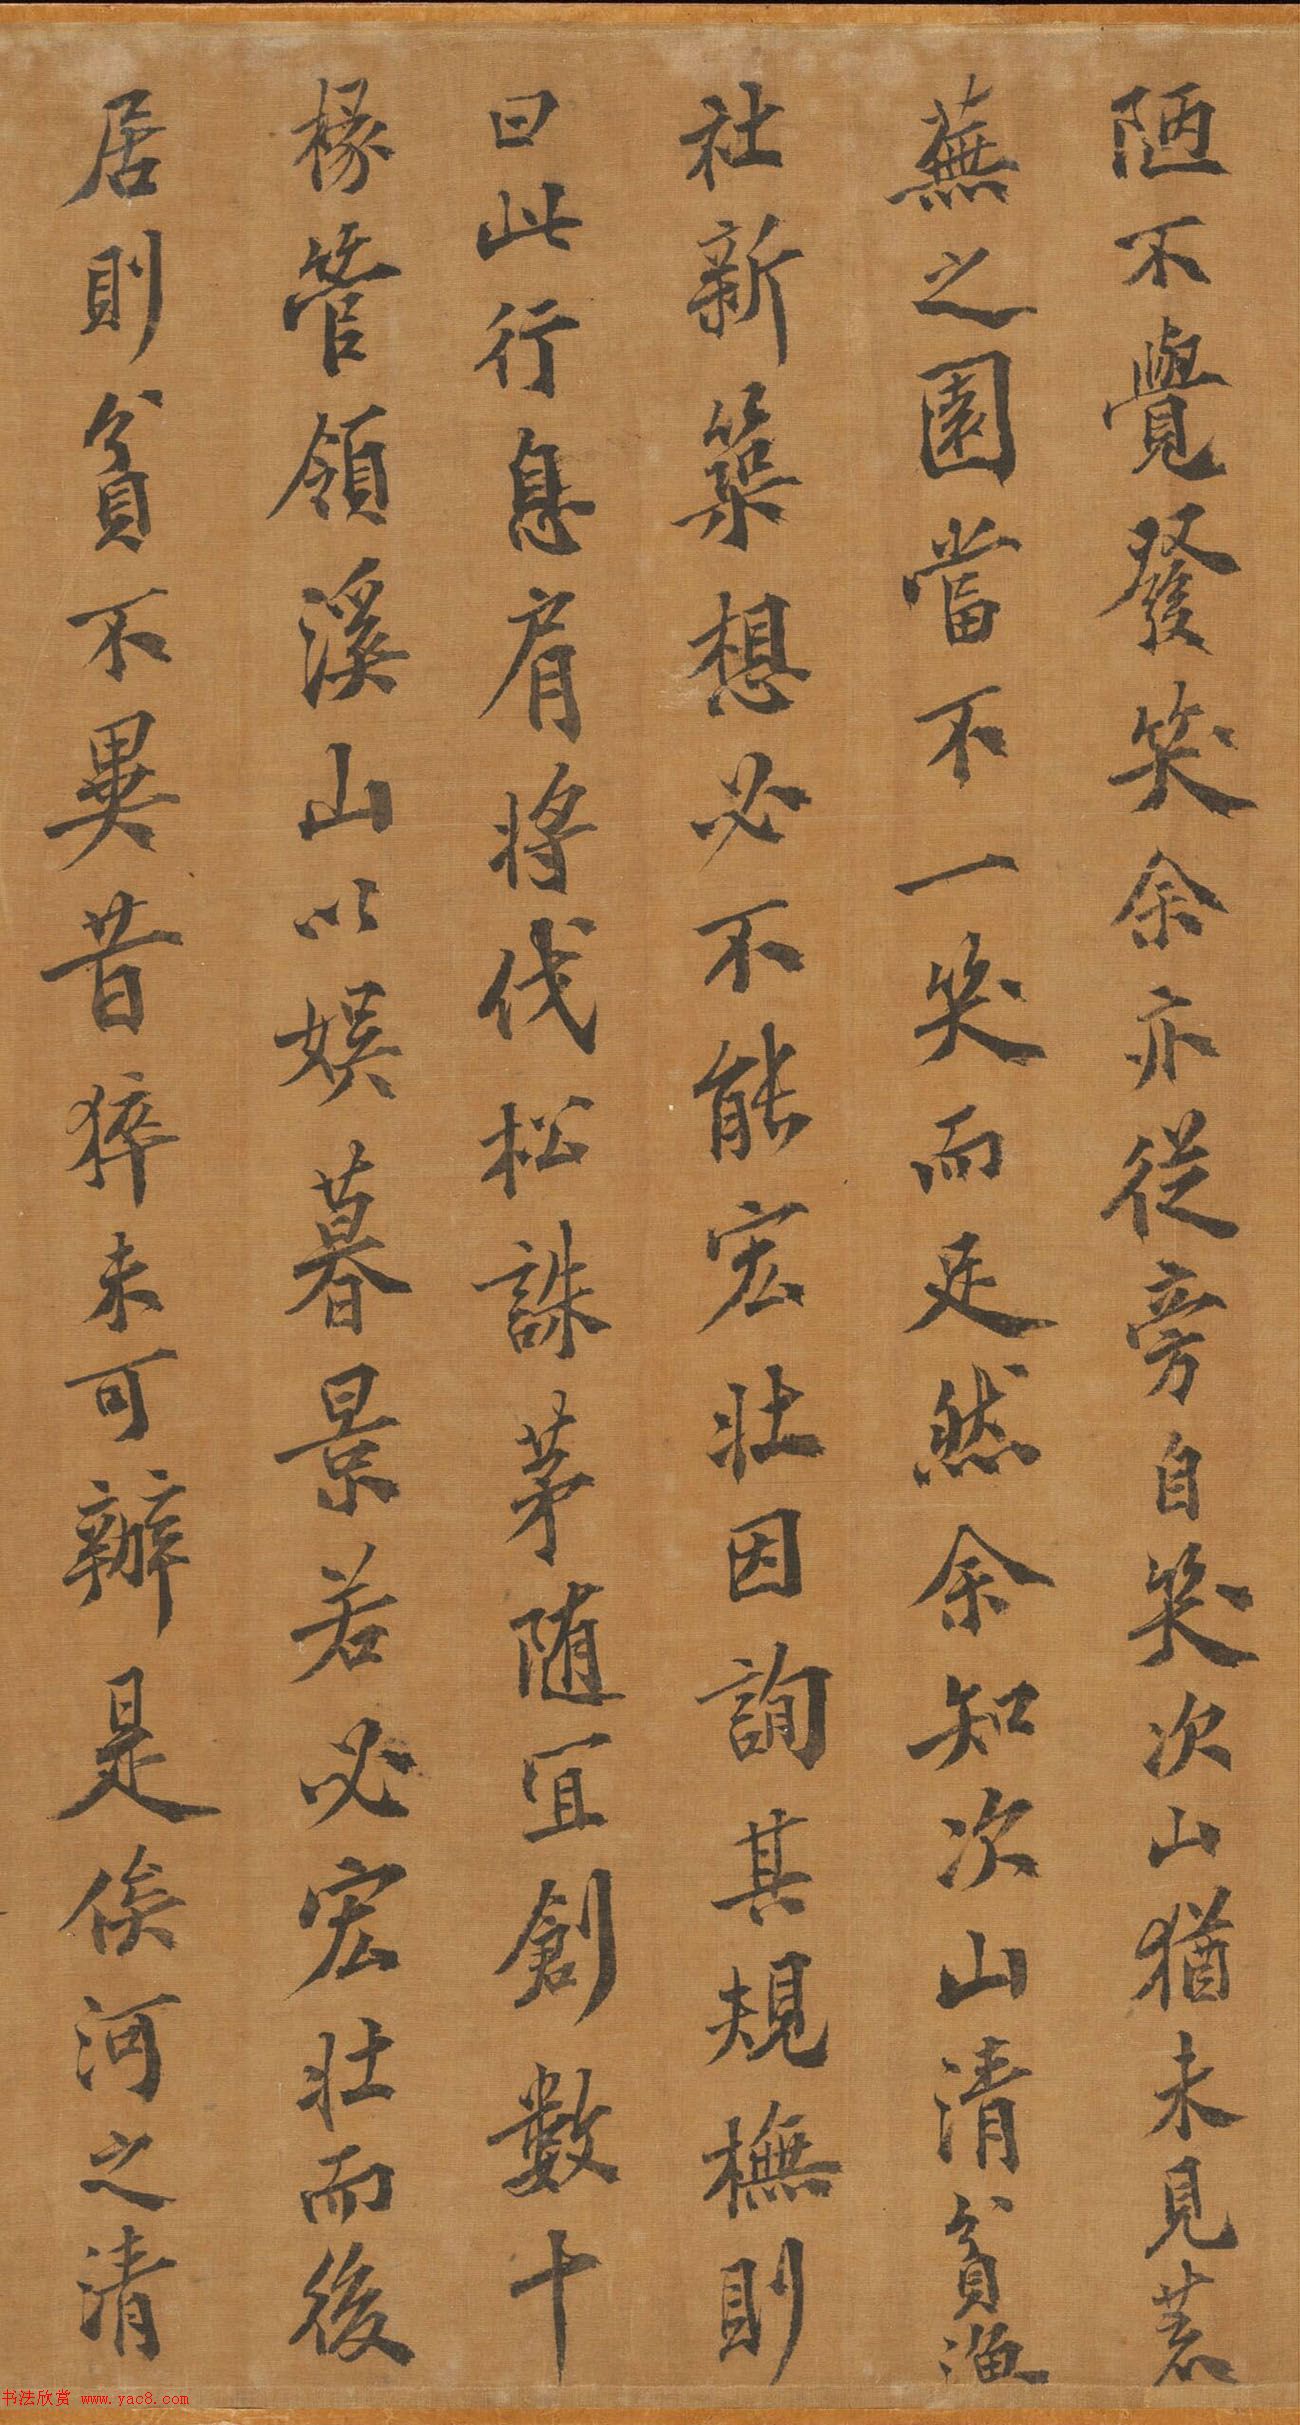 陋不覺發笑余亦從旁自笑次山猶未見苕
蕪之園當不一笑而足然余知次山清貧漁
社新築想必不能宏壯因詢其規橅則
曰此行息肩將伐松誅茅隨宜創數十
椽管領溪山以娛暮景若必宏壯而後
居則貧不異昔猝未可辦是俟河之清
书法欣赏 www.yac8.com